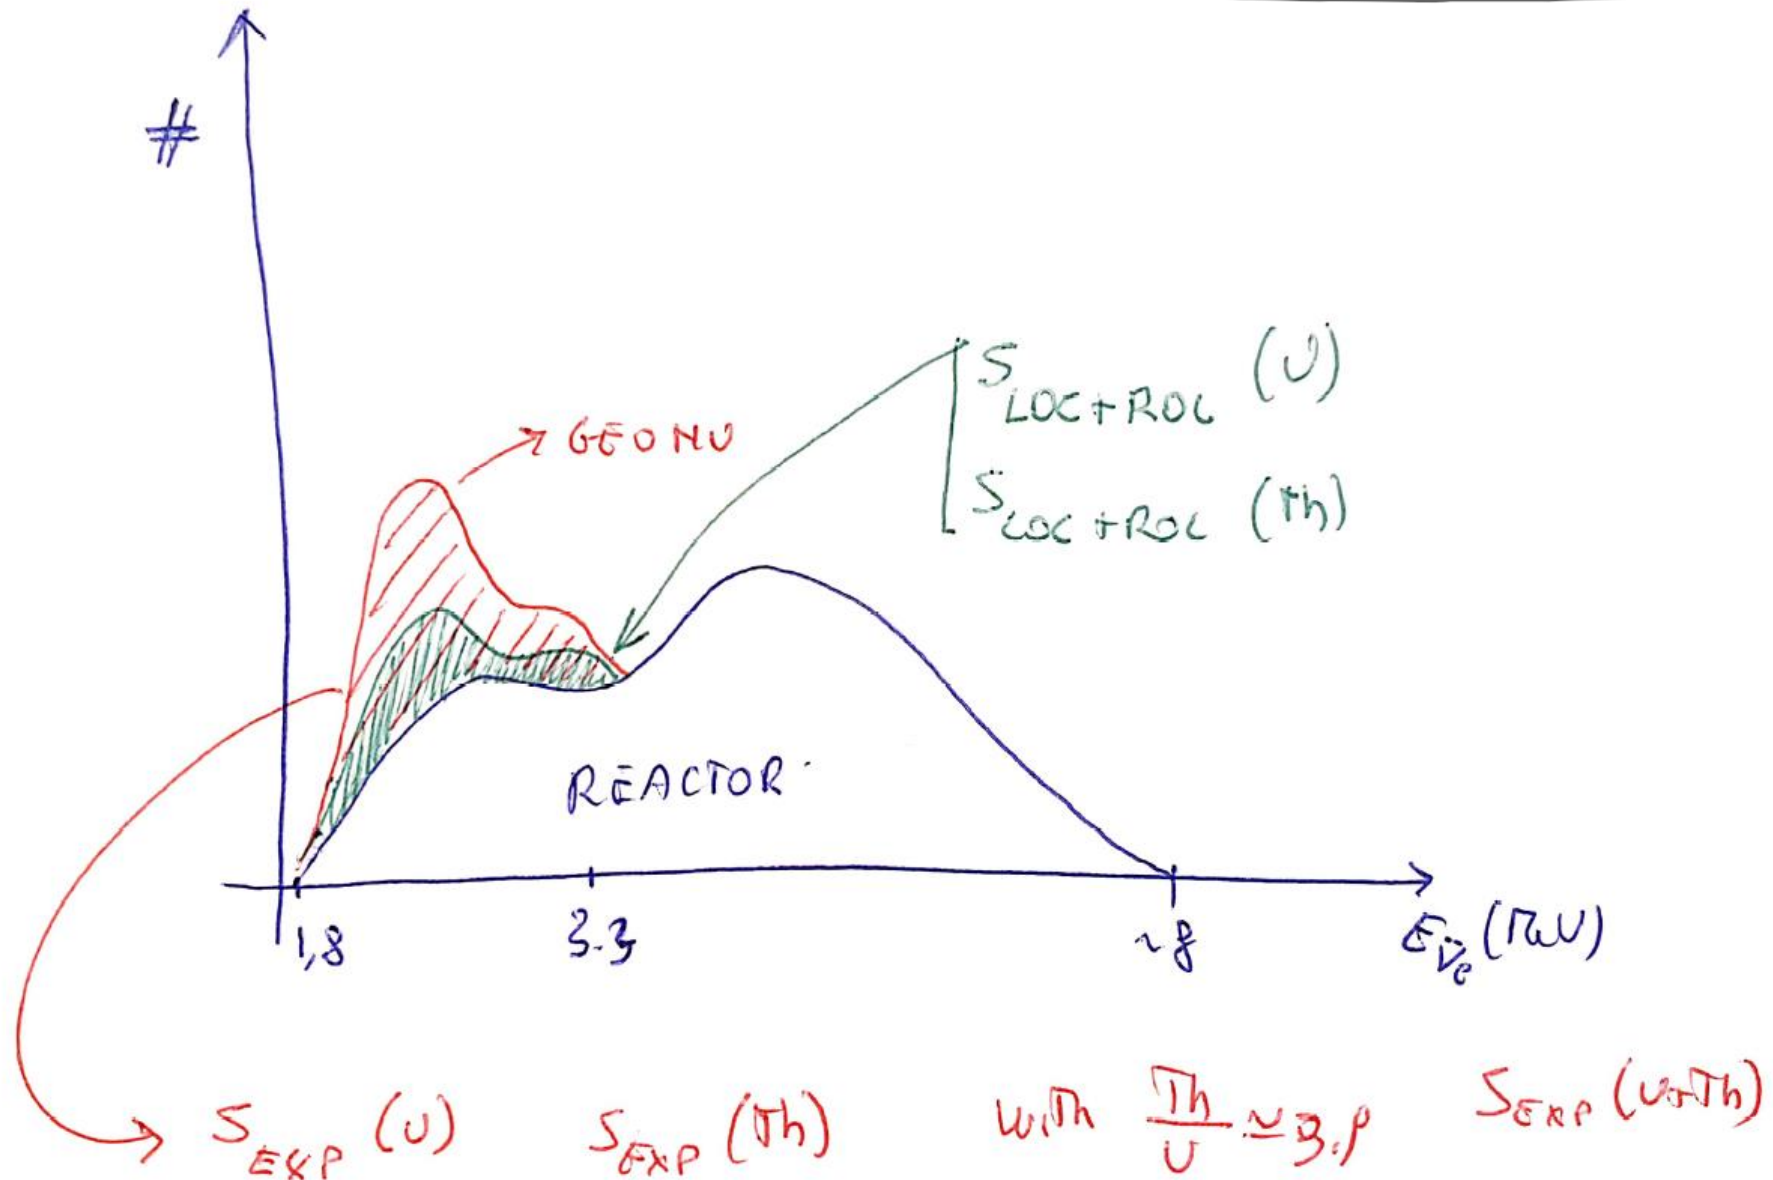 #
S LOC+ROC (U)
GEONU
S LOC+ROC (Th)
REACTOR
1,8
3.3
~8
E ν̄e (MeV)
S EXP (U)
S EXP (Th)
with Th/U ≃ 3.9
S EXP (U+Th)